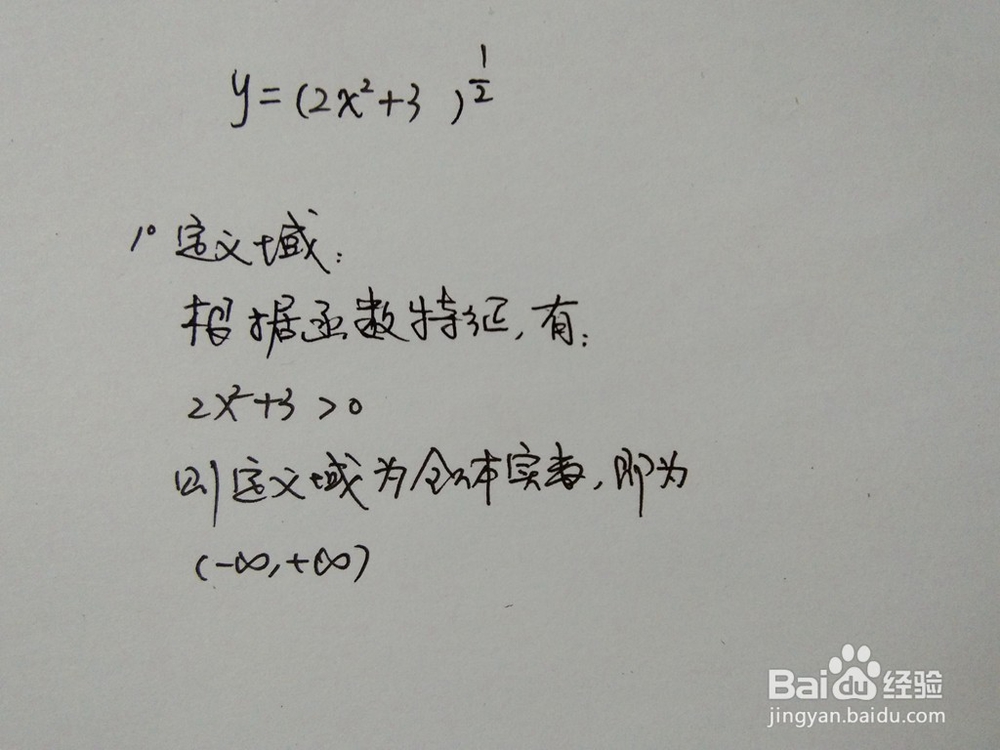 y=(2x²+3 )^{1/2}
1° 定义域:
根据函数特征,有:
2x²+3>0
则定义域为全体实数,即为
(-∞,+∞)
Baidu经验
jingyan.baidu.com